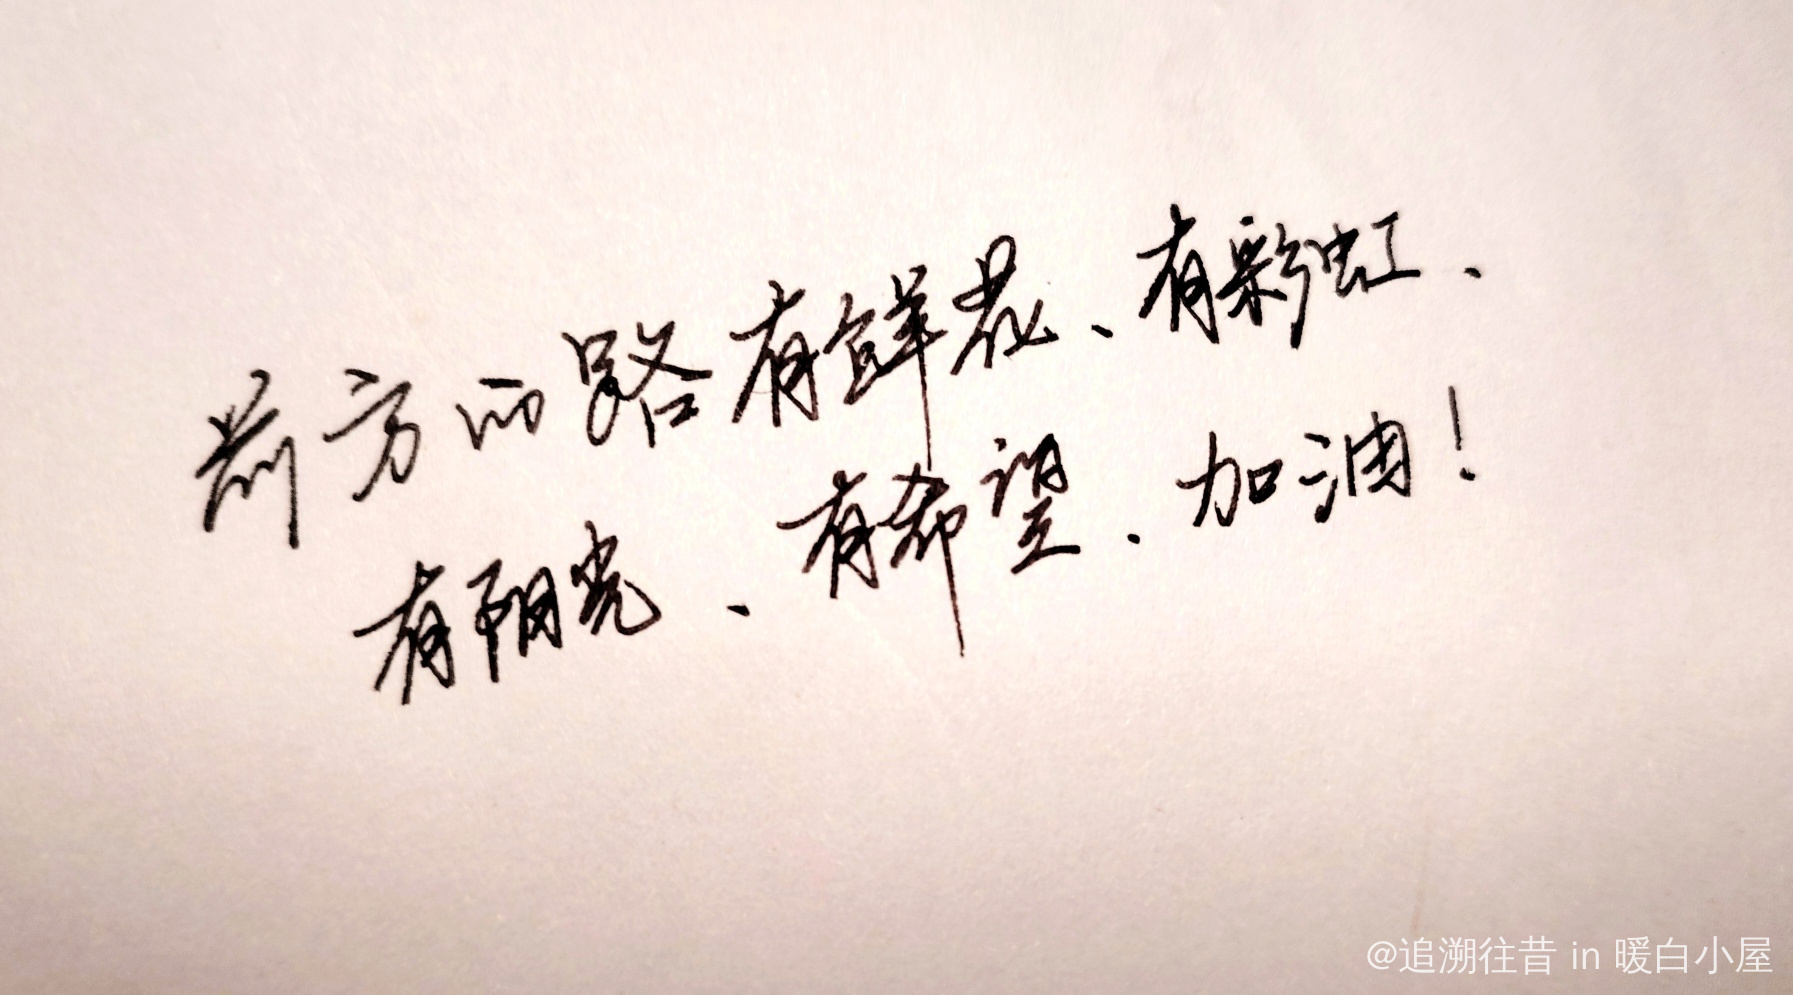 前方的路有鲜花、有彩虹、
有阳光、有希望、加油！
@追溯往昔 in 暖白小屋